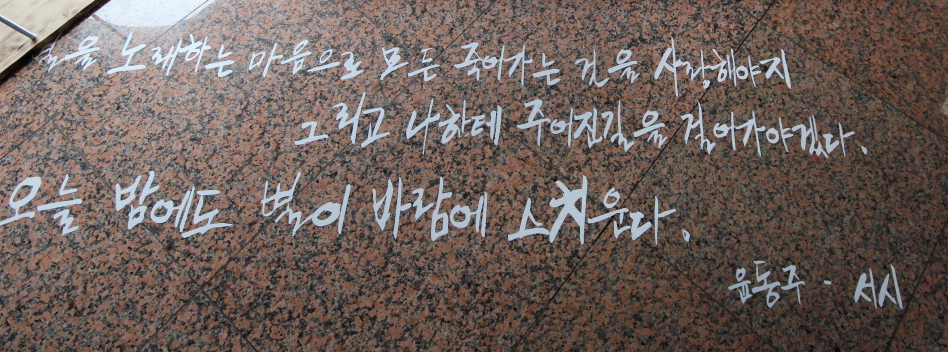 별을 노래하는 마음으로 모든 죽어가는 것을 사랑해야지
그리고 나한테 주어진길을 걸어가야겠다.
오늘 밤에도 별이 바람에 스치운다.
윤동주 - 서시